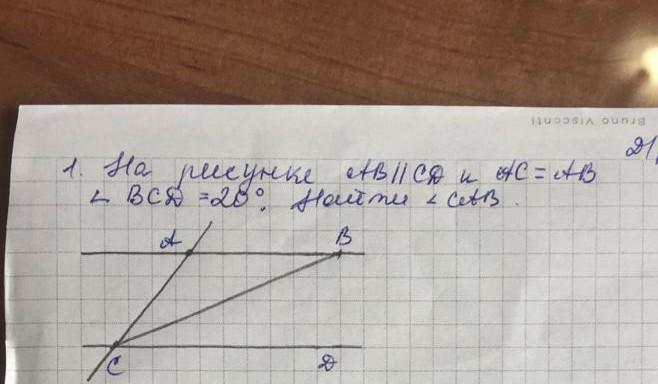 Bruno Visconti
1. На рисунке AB||CD и AC=AB
∠ BCD =20°. Найти ∠ CAB.
A B
C D